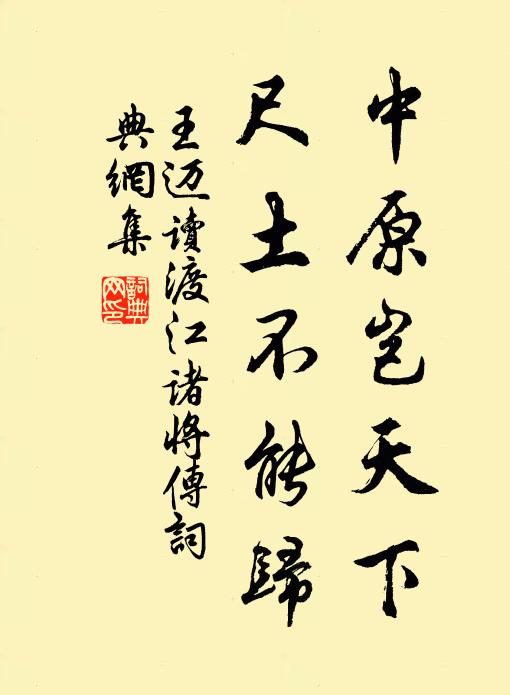 中原岂天下
尺土不能歸
王迈讀渡江诸將傳詞
典網集
詞典
网印